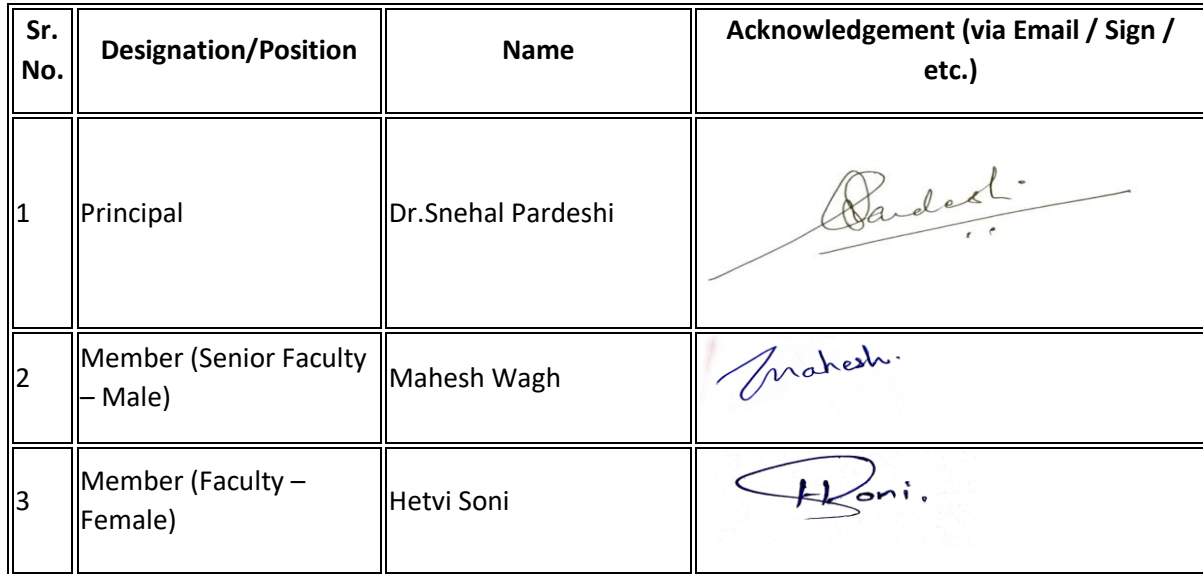 Sr. No. Designation/Position Name Acknowledgement (via Email / Sign / etc.)
1 Principal Dr.Snehal Pardeshi Pardeshi
2 Member (Senior Faculty – Male) Mahesh Wagh Mahesh.
3 Member (Faculty – Female) Hetvi Soni HSoni.